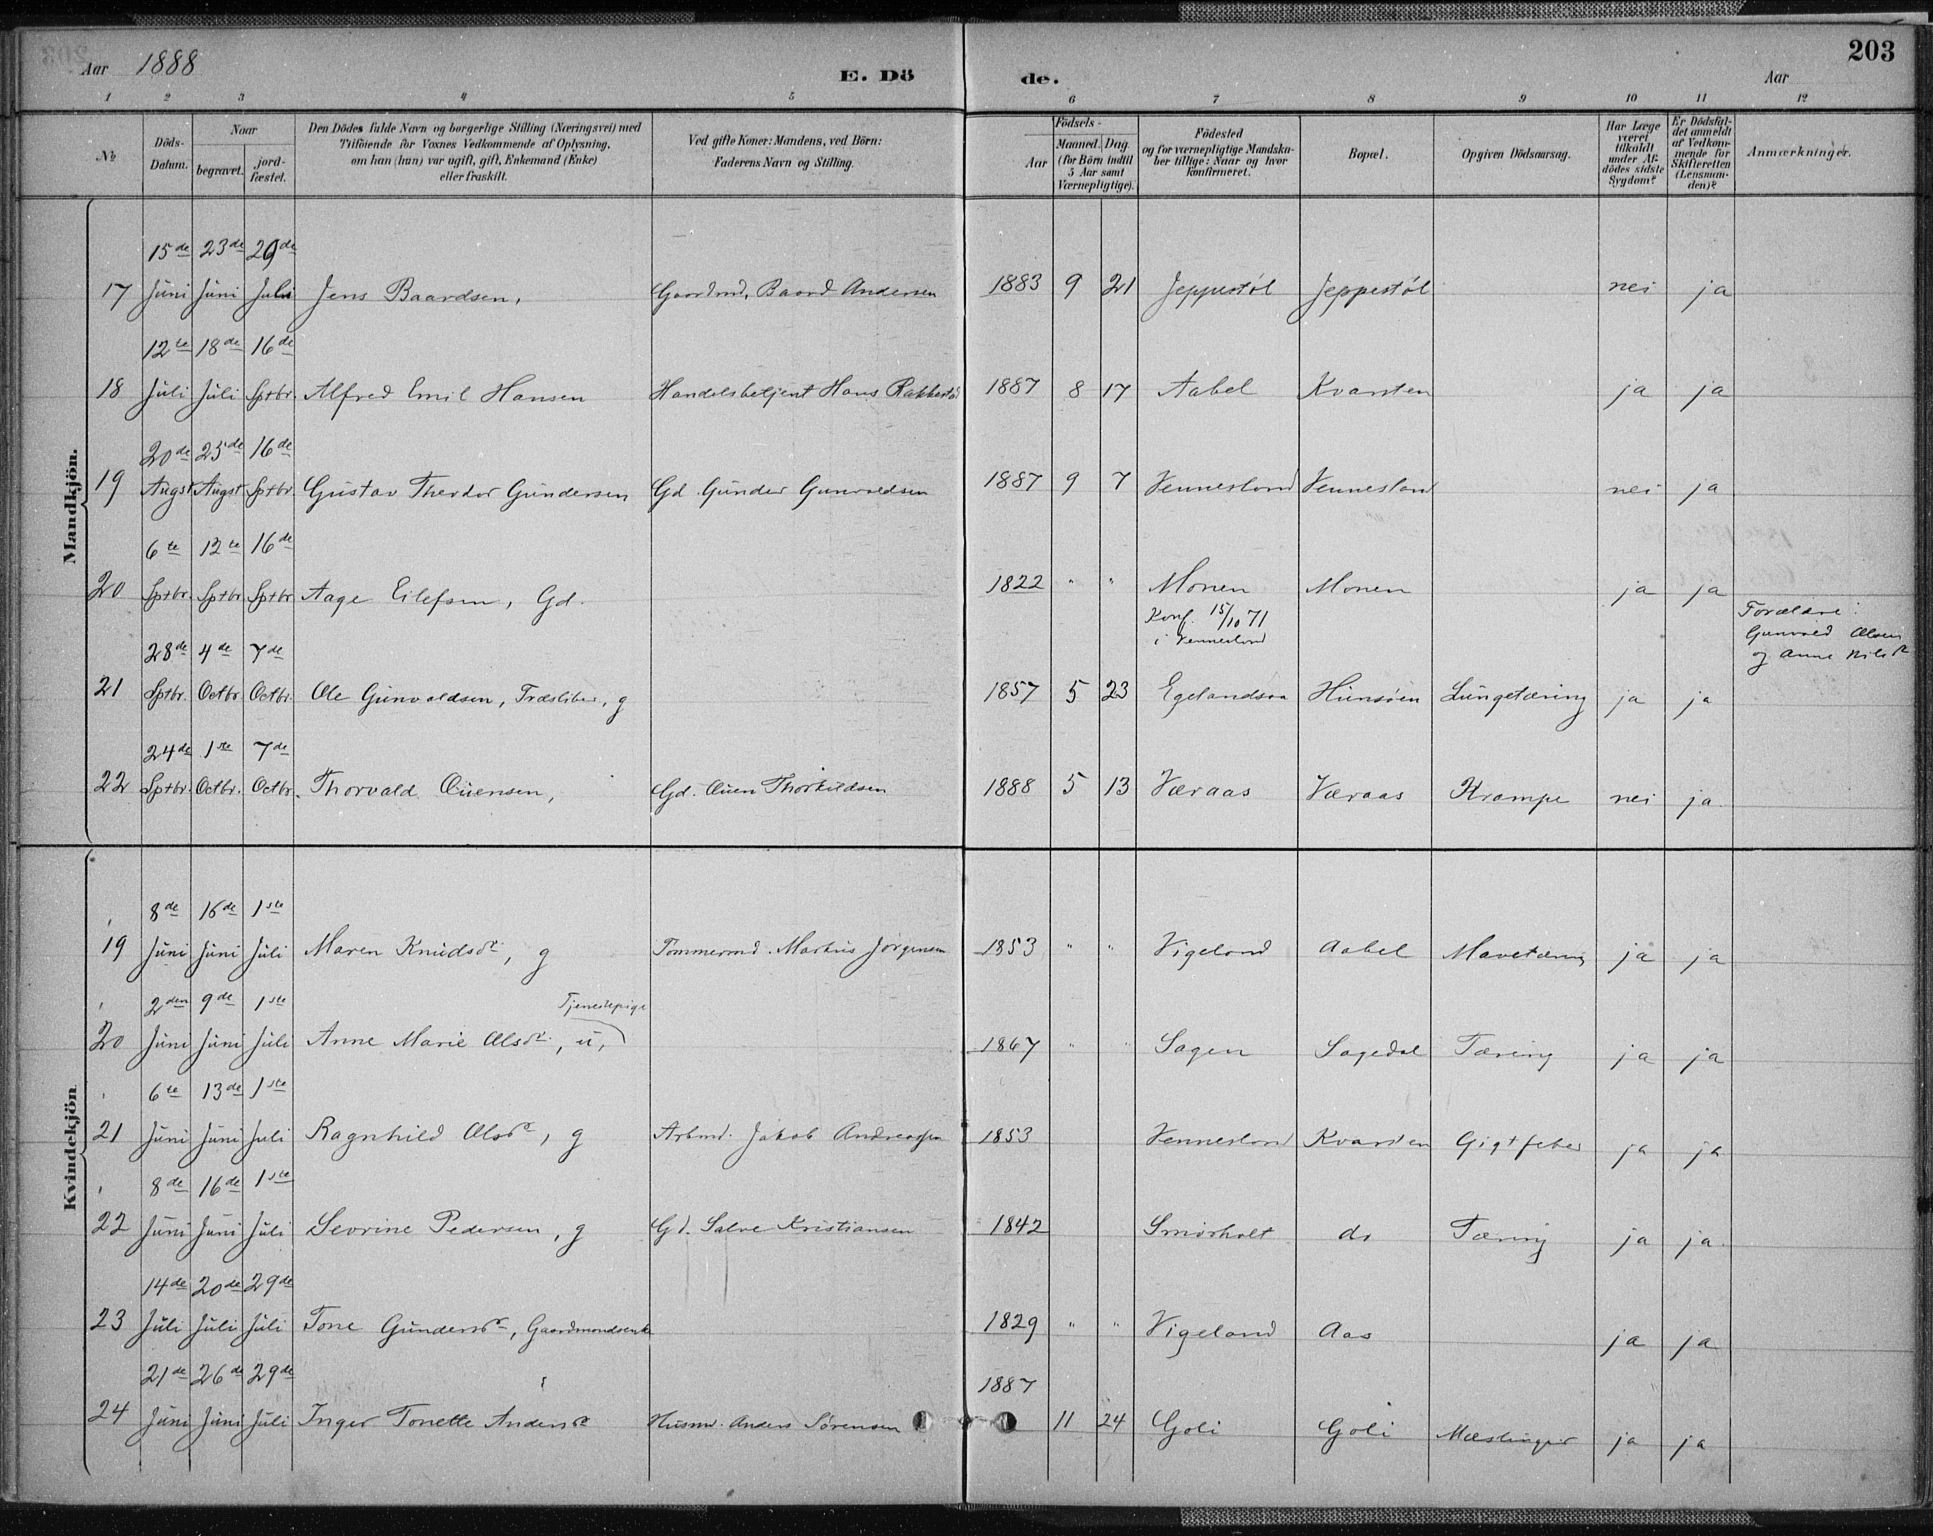 203
Aar 1888 E. Dö de. Aar
1 2 3 4 5 6 7 8 9 10 11 12
№
Döds-Datum.
Naar
begravet.
jord-fæstet.
Den Dödes fulde Navn og borgerlige Stilling (Næringsvei) med
Tilföiende for Voxnes Vedkommende af Oplysning,
om han (hun) var ugift, gift, Enkemand (Enke)
eller fraskilt.
Ved gifte Koner: Mandens, ved Börn:
Faderens Navn og Stilling.
Födsels-
Aar
Maaned. Dag.
(for Börn indtil
5 Aar samt
Værnepligtige).
Födested
og for værnepligtige Mandska-
ber tillige: Naar og hvor
konfirmeret.
Bopæl.
Opgiven Dödsaarsag.
Har Læge
været
tilkaldt
under Af-
dödes sidste
Sygdom?
Er Dödsfal-
det anmeldt
af Vedkom-
mende for
Skifteretten
(Lensman-
den)?
Anmærkninger.
Mandkjön.
15de 23de 29de
17 Juni Juni Juli Jens Baardsen, Gaardmd. Baard Andersen 1883 9 21 Jeppestøl Jeppestøl nei ja
12te 18de 16de
18 Juli Juli Sptbr. Alfred Emil Hansen Handelsbetjent Hans Rakkestad 1887 8 17 Aabel Kvarsten ja ja
20de 25de 16de
19 Augst Augst Sptbr. Gustav Theodor Gundersen Gd. Gunder Gunvaldsen 1887 9 7 Vennesland Vennesland nei ja
6te 12te 16de
20 Sptbr. Sptbr Sptbr Aage Eilefsen, Gd. 1822 " " Monen Monen ja ja
Konf. 15/10 71
i Vennesland
Forældre:
Gunvald Olsen
og Anne Nilsdr
28de 4de 7de
21 Sptbr. Octbr. Octbr. Ole Gunvaldsen, Træsliber, g 1857 5 23 Egelandsaa Hunsøen Lungetæring ja ja
24de 1ste 7de
22 Sptbr. Octbr. Octbr. Thorvald Ouensen, Gd. Ouen Thorkildsen 1888 5 13 Væraas Væraas Krampe nei ja
Kvindekjön
8de 16de 1ste
19 Juni Juni Juli Maren Knudsdr, g Tømmermd. Markus Jørgensen 1853 " " Vigeland Aabel Mavetæring ja ja
2den 9de 1ste Tjenestepige
20 Juni Juni Juli Anne Marie Olsdr, u, 1867 " " Sagen Sagedal Tæring ja ja
6te 13de 1ste
21 Juni Juni Juli Ragnhild Olsdr, g Arbmd. Jakob Andreassen 1853 Vennesland Kvarsten Gigtfeber ja ja
8de 16de 1ste
22 Juni Juni Juli Sevrine Pedersen, g Gd. Salve Kristiansen 1842 Smørholt do Tæring ja ja.
14de 20de 29de
23 Juli Juli Juli Tone Gundersdr, Gaardmandsenke 1829 " " Vigeland Aas ja ja
21de 26de 29de 1887
24 Juni Juni Juli Inger Tonette Andersdr Husmd. Anders Sørensen 11 24 Goli Goli Mæslinger ja ja